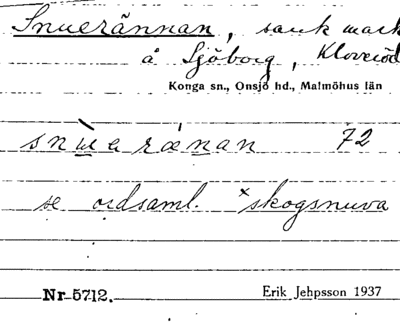 Snuerännan, sank mark
å Sjöborg, Kloveröd
Konga sn., Onsjö hd., Malmöhus län
snùaránan 72
se ordsaml. ˣskogsnuva
Nr 5712. Erik Jehpsson 1937